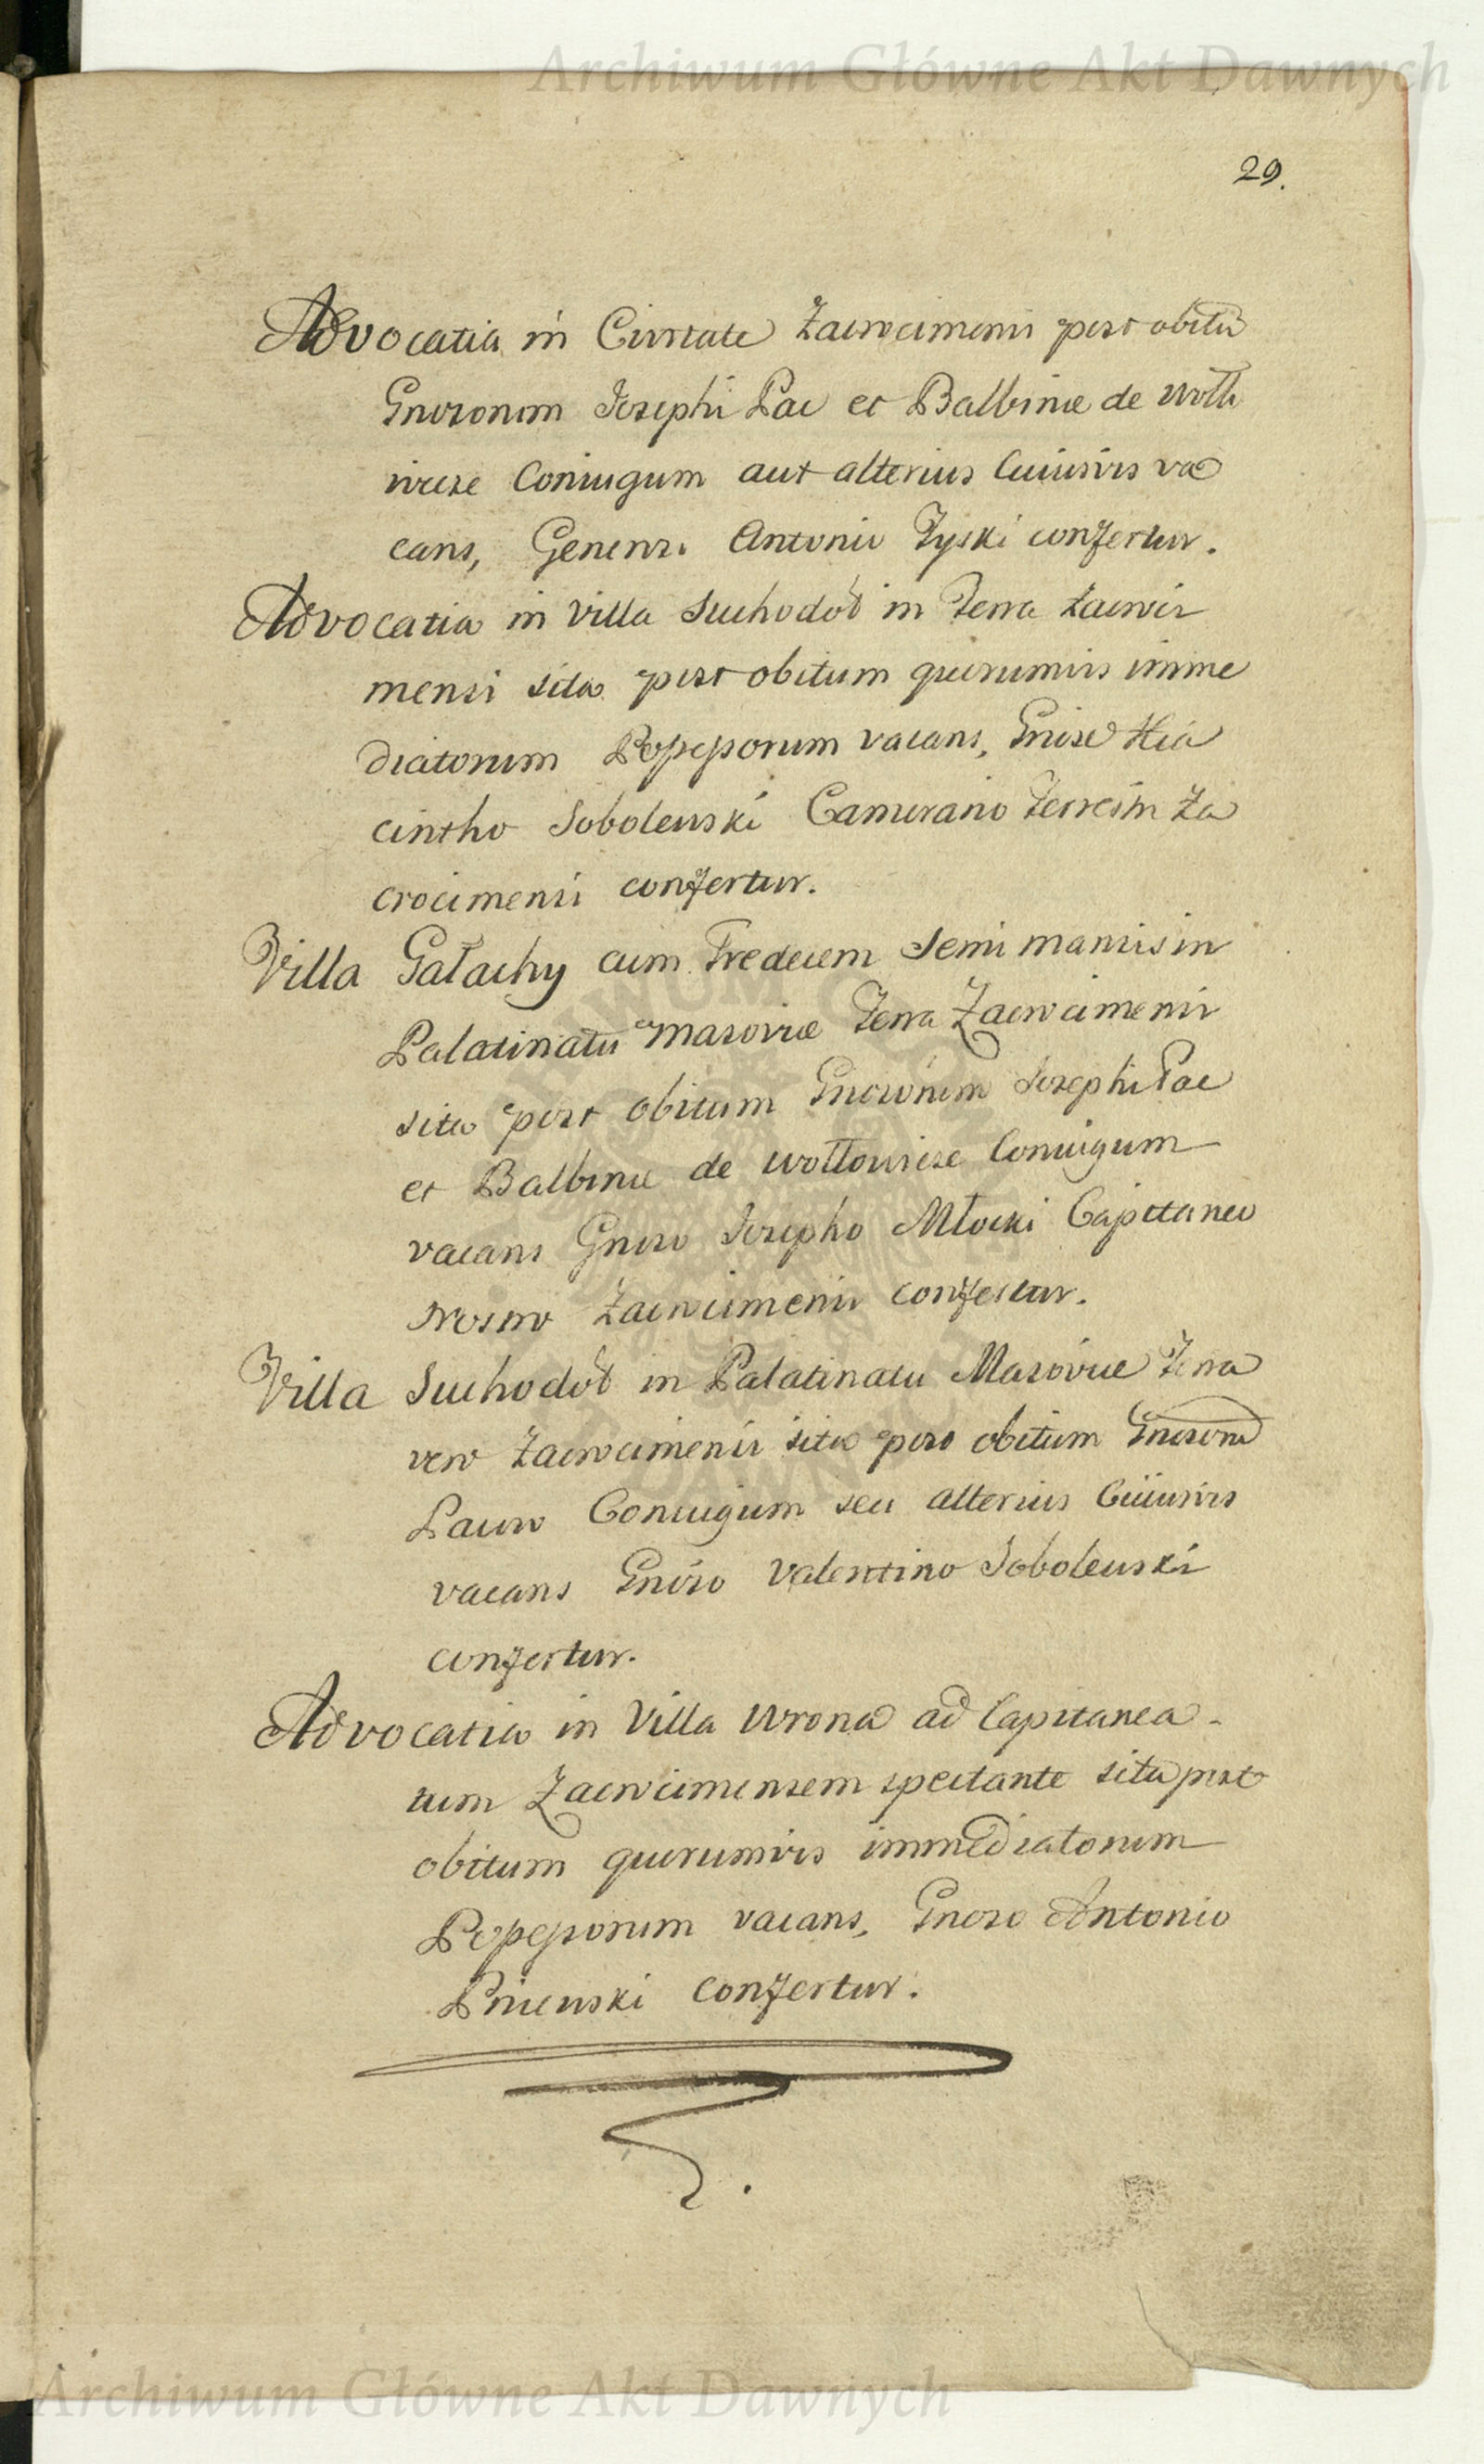 Archiwum Główne Akt Dawnych
29.
Advocatia in Civitate Zacrocimensi post obitū
Gnerosorum Josephi Pac et Balbinæ de Wołł
wicze Coniugum aut alterius Cuiusvis va
cans, Generoso Antonio Tyski confertur.
Advocatia in Villa Suchodoł in Terra Zacroci
mensi sita post obitum quorumvis imme
diatorum Possessorum vacans, Gnoso Hia
cintho Sobolewski Camerario Terrestri Za
crocimensi confertur.
Villa Gałachy cum Tredecem Semi mansis in
Palatinatu Masoviæ Terra Zacrocimensi
sita post obitum Gnerosorum Josephi Pac
et Balbinæ de Wołłowicze Coniugum
vacans Gnoso Josepho Młocki Capitaneo
Nostro Zacrocimensi confertur.
Villa Suchodoł in Palatinatu Masoviæ Terra
vero Zacrocimensi sita post obitum Gnerosorū
Paców Coniugum seu alterius Cuiusvis
vacans Gnoso Valentino Sobolewski
confertur.
Advocatia in Villa Wrona ad Capitanea-
tum Zacrocimensem spectante sita post
obitum quorumvis immediatorum
Possessorum vacans, Gnoso Antonio
Pniewski Confertur.
Archiwum Główne Akt Dawnych